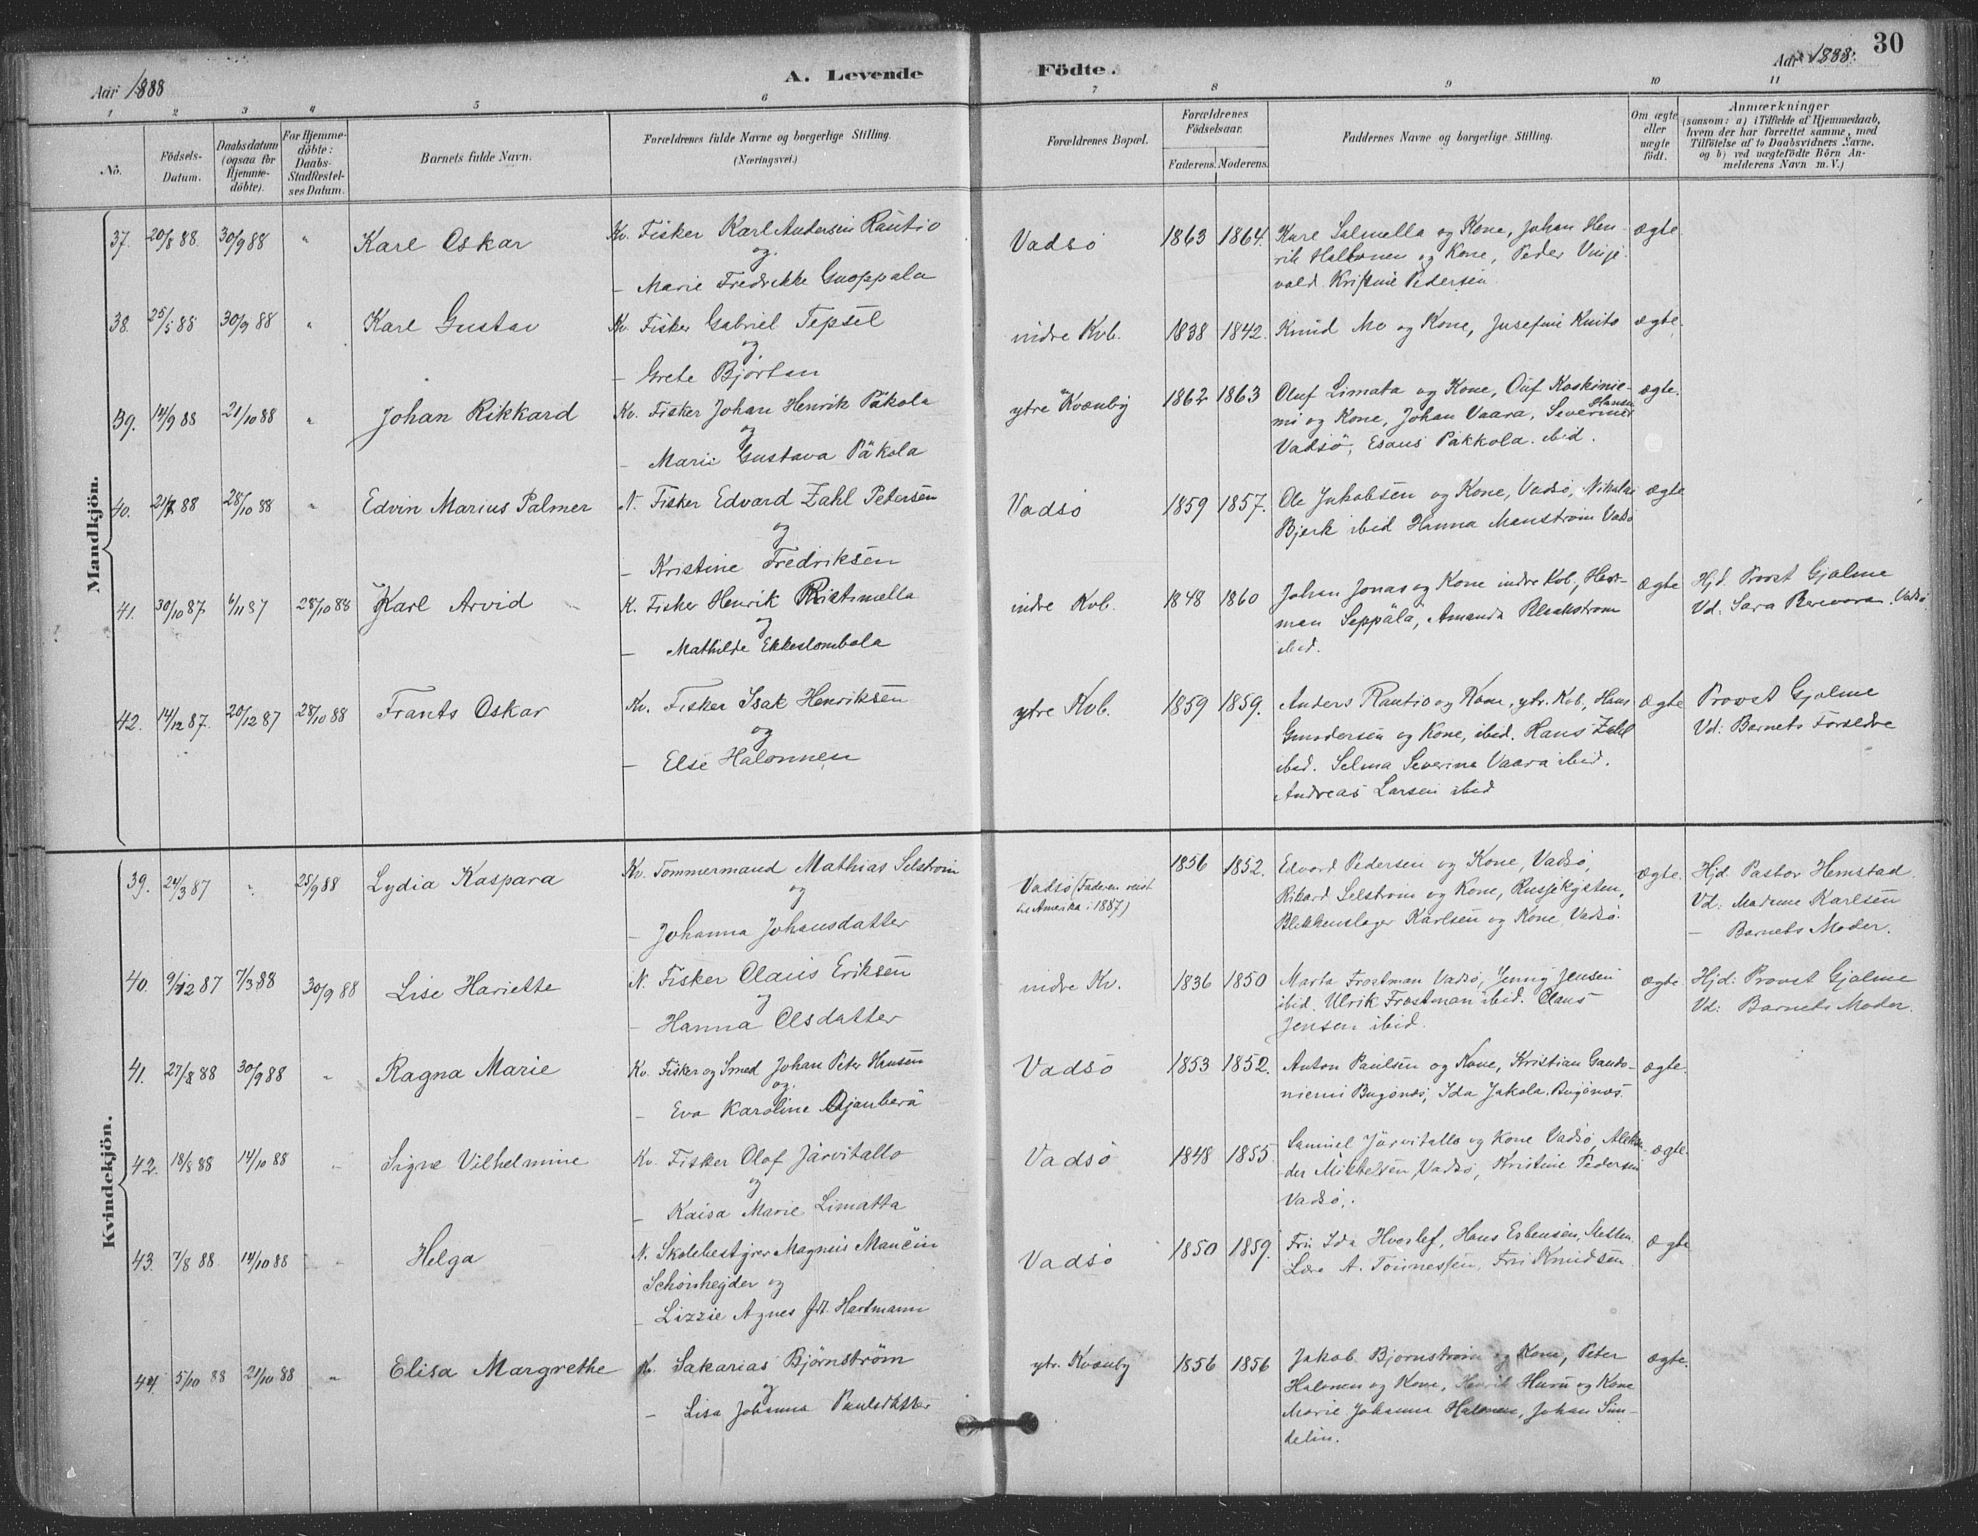 30
Aar 1888
A. Levende
Födte.
Aar 1888.
1 2 3 4 5 6 7 8 9 10 11
No.
Födsels-Datum.
Daabsdatum (ogsaa for Hjemme-döbte).
For Hjemme-döbte: Daabs-Stadfæstel-ses Datum.
Barnets fulde Navn.
Forældrenes fulde Navne og borgerlige Stilling.
(Næringsvei.)
Forældrenes Bopæl.
Forældrenes Födselsaar.
Faderens. Moderens.
Faddernes Navne og borgerlige Stilling.
Om ægte eller uægte födt.
Anmærkninger
(saasom: a) i Tilfælde af Hjemmedaab, hvem der har forrettet samme, med Tilföielse af to Daabsvidners Navne. og b) ved uægtefödte Börn An-melderens Navn m. V.)
Mandkjön.
37. 20/8 88. 30/9 88 " Karl Oskar Kv. Fisker Karl Andersen Rautio Vadsö 1863 1864. Kone, Johan Hen- ægte
og rik Halonen og Kone, Peder
– Marie Fredrikke Kristine Pedersen
38. 25/5 88 30/9 88 " Karl Gustav Kv. Fisker Gabriel indre Kvb. 1838 1842. Knud Mo og Kone, Josefine ægte.
og
– Grete
39. 14/9 88 21/10 88 " Johan Rikkard Kv. Fisker Johan Henrik Päkola ytre Kvænby 1862 1863 Oluf Limata og Kone, Koskinie- ægte.
og mi og Kone, Johan Vaara, Severine Hansen
– Marie Gustava Päkola Vadsö, Esaus Pakkola ibid.
40. 88 28/10 88 " Edvin Marius Palmer N. Fisker Edvard Zahl Petersen Vadsö 1859 1857. Ole Jakobsen og Kone, Vadsö, Nikolai ægte
og Bjerk ibid Hanna Vadsö
– Kristine Fredriksen
41. 30/10 87. 6/11 87 28/10 88 Karl Arvid K. Fisker Henrik indre Kvb. 1848 1860 Johan Jonas og Kone indre Kvb., Her- ægte Hjd. Provst Gjølme
og man Seppäla, Amanda Vd: Sara Vadsö
– Mathilde ibid.
42. 14/12 87. 20/12 87 28/10 88 Frants Oskar Kv. Fisker Isak Henriksen ytre Kvb. 1859 1859. Anders Rautio og Kone, ytr. Kvb., Hans ægte Provst Gjølme
og og Kone, ibid. Hans Zahl Vd: Barnets Forældre
– Else Halonnen ibid. Selma Severine Vaara ibid.
Andreas Larsen ibid
Kvindekjön.
39. 24/3 87 " 25/9 88 Lydia Kaspara Kv. Tömmermand Mathias Selström Vadsö (Faderen reist 1856 1852. Edvard Pedersen og Kone, Vadsö, ægte. Hjd. Pastor Hemstad
og til Amerika i 1887) Rikard Selström og Kone, Vd: Madame Karlsen
– Johanna Johansdatter Blikkenslager Karlsen og Kone, Vadsö. – Barnets Moder.
40. 9/12 87 7/3 88 30/9 88 Lise Hariette N. Fisker Olaus Eriksen indre Kv. 1836 1850 Marta Frostman Vadsö, Jenny Jensen ægte Hjd: Provst Gjølme
og ibid. Ulrik Frostman ibid. Olaus Vd: Barnets Moder.
– Hanna Olsdatter Jensen ibid.
41. 27/8 88 30/9 88 " Ragna Marie Kv. Fisker og Smed Johan Peter Hansen Vadsö 1853 1852. Anton Paulsen og Kone, Kristian ægte.
og Bugönæs, Ida Jakola Bugönæs.
– Eva Karoline
42. 18/8 88 14/10 88 " Signe Vilhelmine Kv. Fisker Olof Järvitallo Vadsö 1848 1855 Samuel Järvitallo og Kone Vadsö, Aleksan- ægte
og der Mikkelsen Vadsö, Kristine Pedersen
– Kaisa Marie Limatta Vadsö.
43. 7/8 88 14/10 88 " Helga N. Skolebestyrer Magnus Mancin Vadsö 1850 1859. Fru Ida Hans Esbensen, ægte
Schönheyder og Fru Knudsen
– Lizzie Agnes f. Hartmann
44. 5/10 88 21/10 88 " Elisa Margrethe Kv. Sakarias Björnström ytr. Kvænby 1856 1856 Jakob Björnström og Kone, Peter ægte.
og Halonen og Kone, Henrik Huru og Kone
– Lisa Johanna Paulsdatter Marie Johanna Halonen, Johan Sun-
delin.